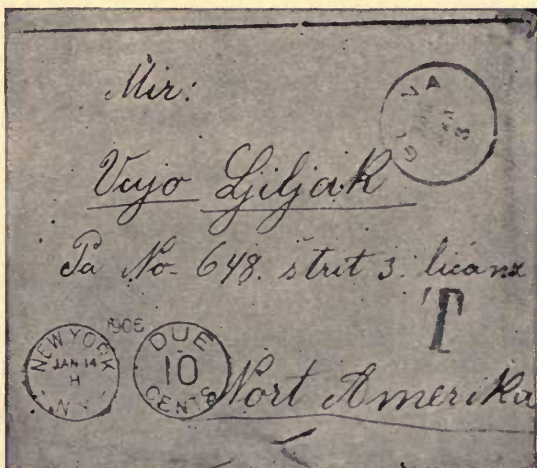 Mir:
Vujo Ljiljak
Pa No- 648. štrit 3. licanz
T
1906
NEW YORK
JAN 14
H
N.Y.
DUE
10
CENTS
Nort Amerika